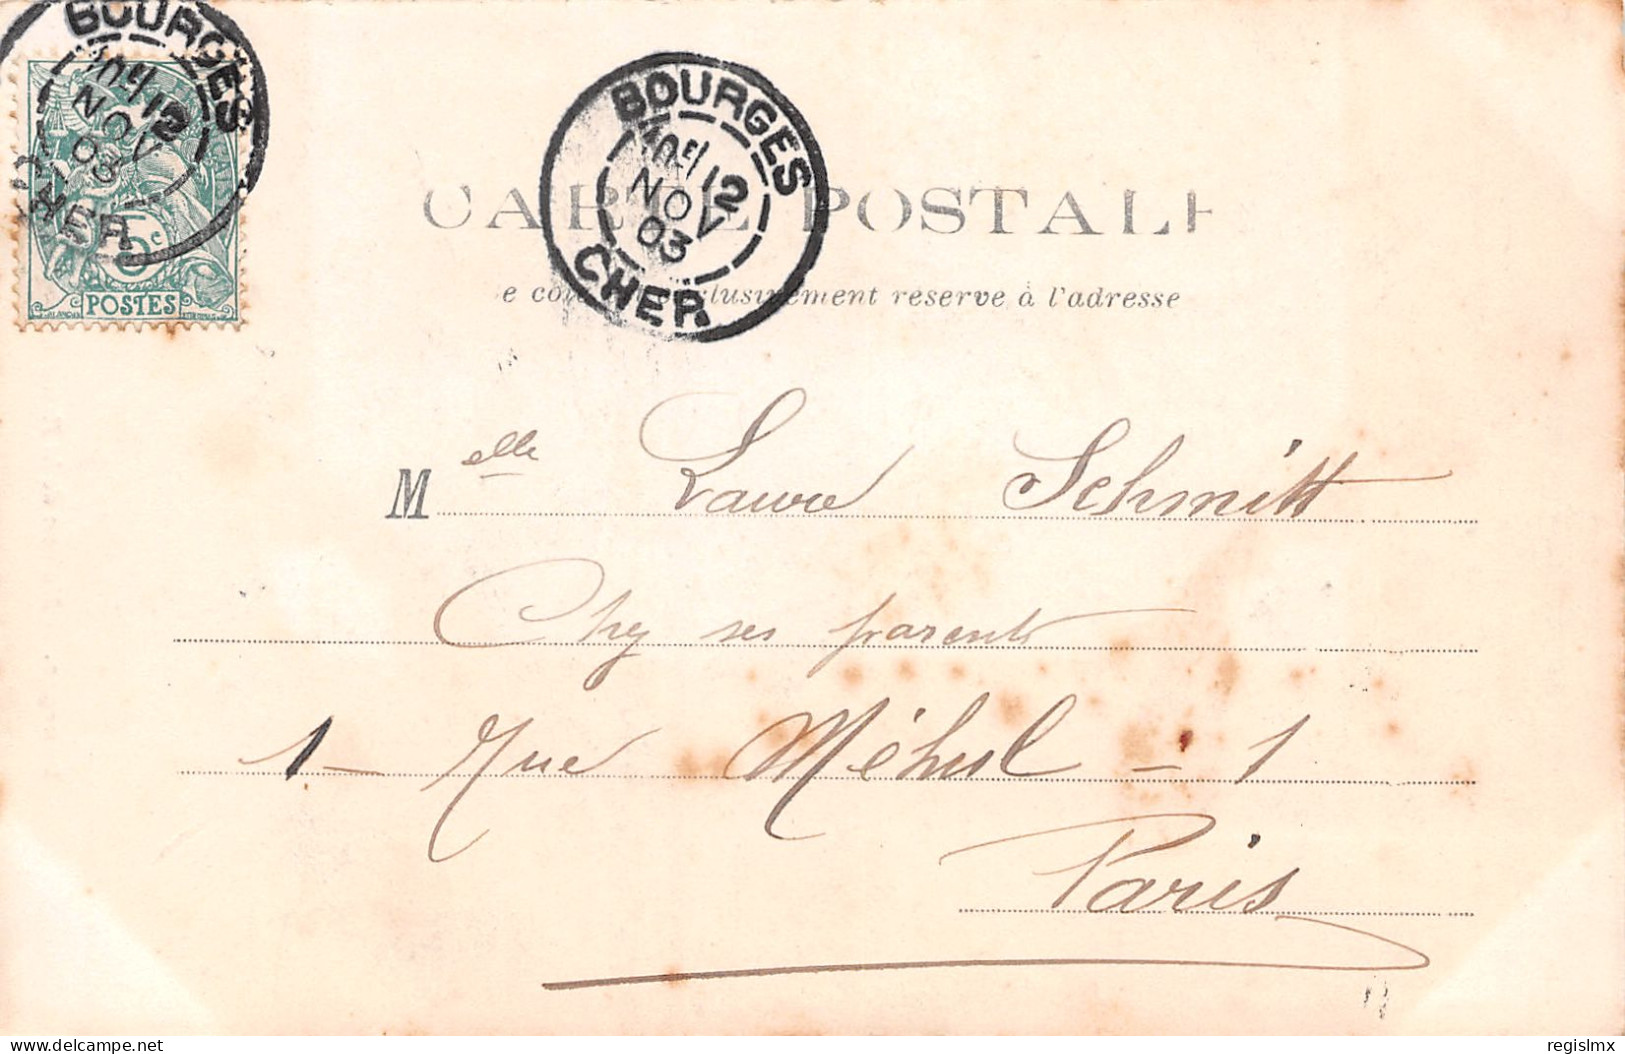 BOURGES
12
NOV
03
5c
POSTES
BOURGES
12
NOV
03
CHER
CARTE POSTALE
exclusivement réservé à l'adresse
Melle Laure Schmitt
Chez ses parents
1 - Rue Méhul - 1
Paris
www.delcampe.net
regislmx